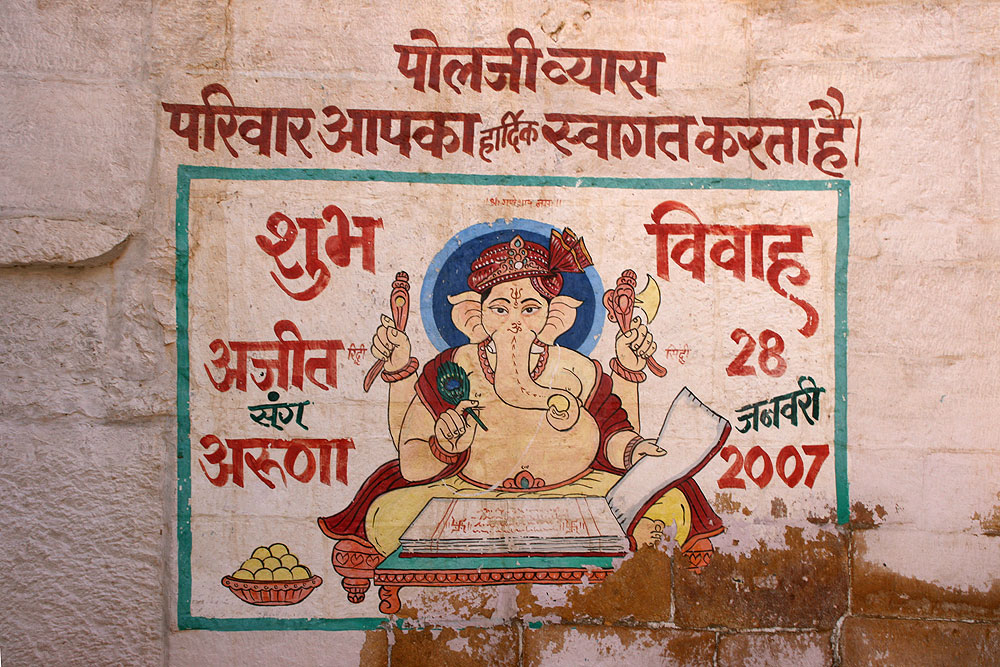 पोलजी व्यास
परिवार आपका हार्दिक स्वागत करता है।
शुभ विवाह
अजीत
संग
अरूणा
28
जनवरी
2007